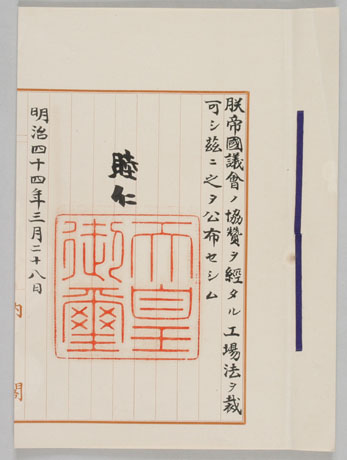 朕帝國議會ノ協贊ヲ經タル工場法ヲ裁
可シ茲ニ之ヲ公布セシム
睦仁
天皇
御璽
明治四十四年三月二十八日
内閣